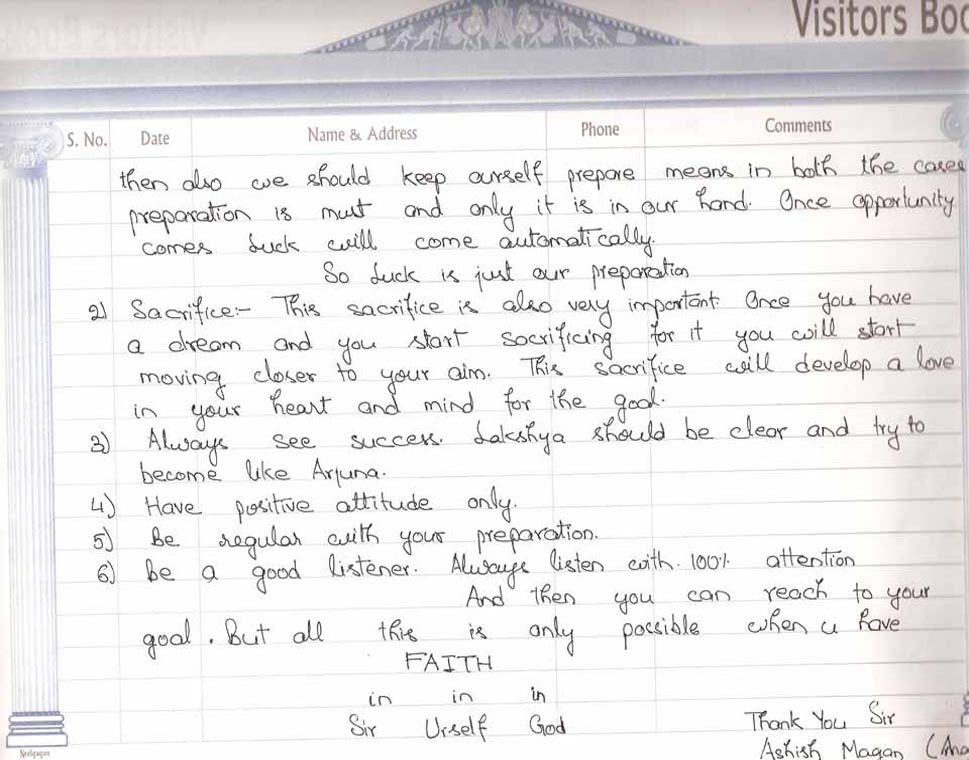 Visitors Boo
S. No. Date Name & Address Phone Comments
then also we should keep ourself prepare means in both the cases
preparation is must and only it is in our hand. Once opportunity
comes luck will come automatically.
So luck is just our preparation
2) Sacrifice:- This sacrifice is also very important. Once you have
a dream and you start sacrificing for it you will start
moving closer to your aim. This sacrifice will develop a love
in your heart and mind for the goal.
3) Always see success. Lakshya should be clear and try to
become like Arjuna.
4) Have positive attitude only.
5) Be regular with your preparation.
6) Be a good listener. Always listen with 100% attention
And then you can reach to your
goal. But all this is only possible when u have
FAITH
in in in
Sir Urself God
Thank You Sir
Ashish Magan (Ana
Neelgagan